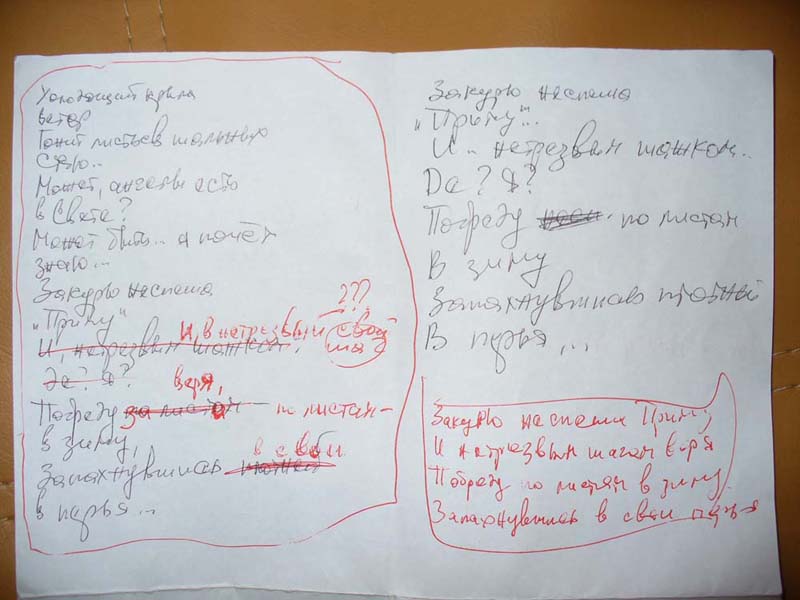 Холодящий крыла
ветер
Гонит листьев шальных
стаю...
Может, ангелы есть
в Свете?
Может быть... а почём
знаю...
Закурю неспеша
???
"Приму"
И, в нетрезвый свой
И, нетрезвым шажком.
шаг
Да? Я?
веря,
Побреду за листом по листам
в зиму,
в свои
Запахнувшись
в перья...
Закурю неспеша
"Приму"...
И.. нетрезвым шажком..
Да? Я?
Побреду по листам
В зиму
Запахнувшись плотней
В перья...
Закурю неспеша Приму
И нетрезвым шагам веря
Побреду по листям в зиму.
Запахнувшись в свои перья